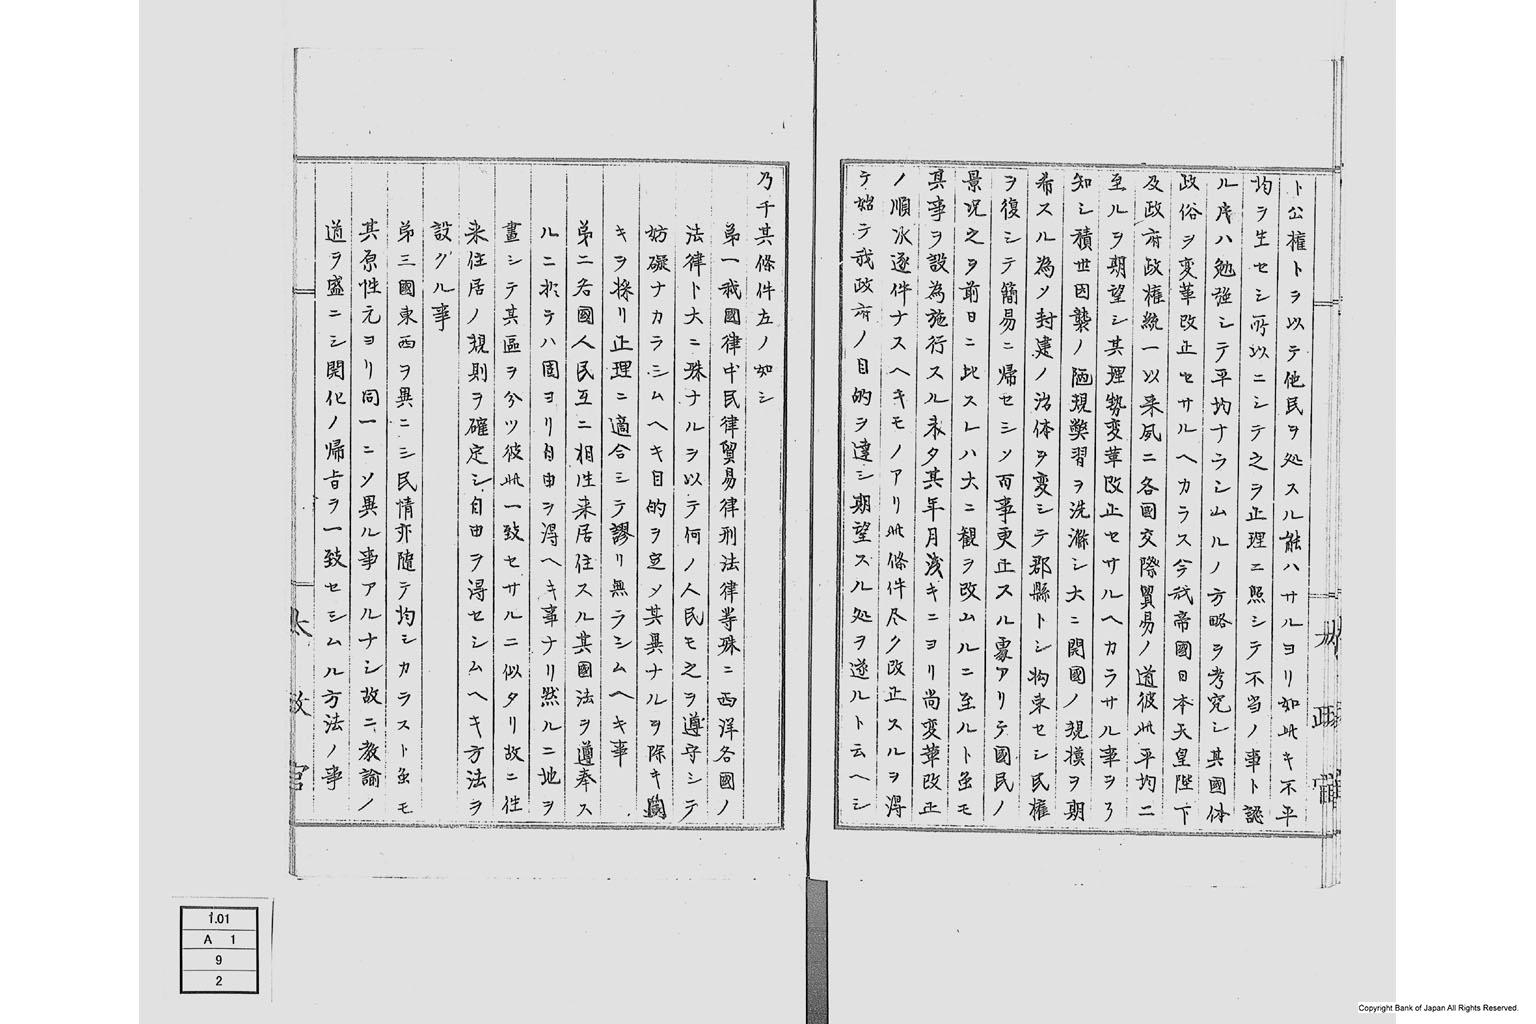 ト公権トヲ以テ他民ヲ処スル能ハサルヨリ如此キ不平
均ヲ生セシ所以ニシテ之ヲ正理ニ照シテ不当ノ事ト認
ル片ハ勉強シテ平均ナラシムルノ方略ヲ考究シ其國体
政俗ヲ変革改正セサルヘカラス今我帝國日本天皇陛下
及政府政権統一以来夙ニ各國交際貿易ノ道彼此平均ニ
至ルヲ期望シ其理勢変革改正セサルヘカラサル事ヲ
知シ積世因襲ノ陋規弊習ヲ洗滌シ大ニ開國ノ規模ヲ期
希スル為ソ封建ノ治体ヲ変シテ郡縣トシ拘束セシ民権
ヲ復シテ簡易ニ帰セシソ百事更正スル處アリテ國民ノ
景况之ヲ前日ニ比スレハ大ニ観ヲ改ムルニ至ルト虽モ
其事ヲ設為施行スル未タ其年月浅キニヨリ尚変革改正
ノ順次逐件ナスヘキモノアリ此條件尽ク改正スルヲ得
テ始テ我政府ノ目的ヲ達シ期望スル処ヲ遂ルト云ヘシ
乃千其條件左ノ如シ
第一我國律中民律貿易律刑法律等殊ニ西洋各國ノ
法律ト大ニ殊ナルヲ以テ何ノ人民モ之ヲ遵守シテ
妨礙ナカラシムヘキ目的ヲ定メ其異ナルヲ除キ
キヲ採リ正理ニ適合シテ謬リ無ラシムヘキ事
第二各國人民互ニ相往来居住スル其國法ヲ遵奉ス
ルニ於ラハ固ヨリ自由ヲ得ヘキ事ナリ然ルニ地ヲ
畫シテ其區ヲ分ツ彼此一致セサルニ似タリ故ニ往
来住居ノ規則ヲ確定シ自由ヲ得セシムヘキ方法ヲ
設クル事
第三國東西ヲ異ニシ民情亦隨テ均シカラスト虽モ
其原性元ヨリ同一ニソ異ル事アルナシ故ニ教諭ノ
道ヲ盛ニシ開化ノ帰旨ヲ一致セシムル方法ノ事
太政官
1.01
A 1
9
2
Copyright Bank of Japan All Rights Reserved.